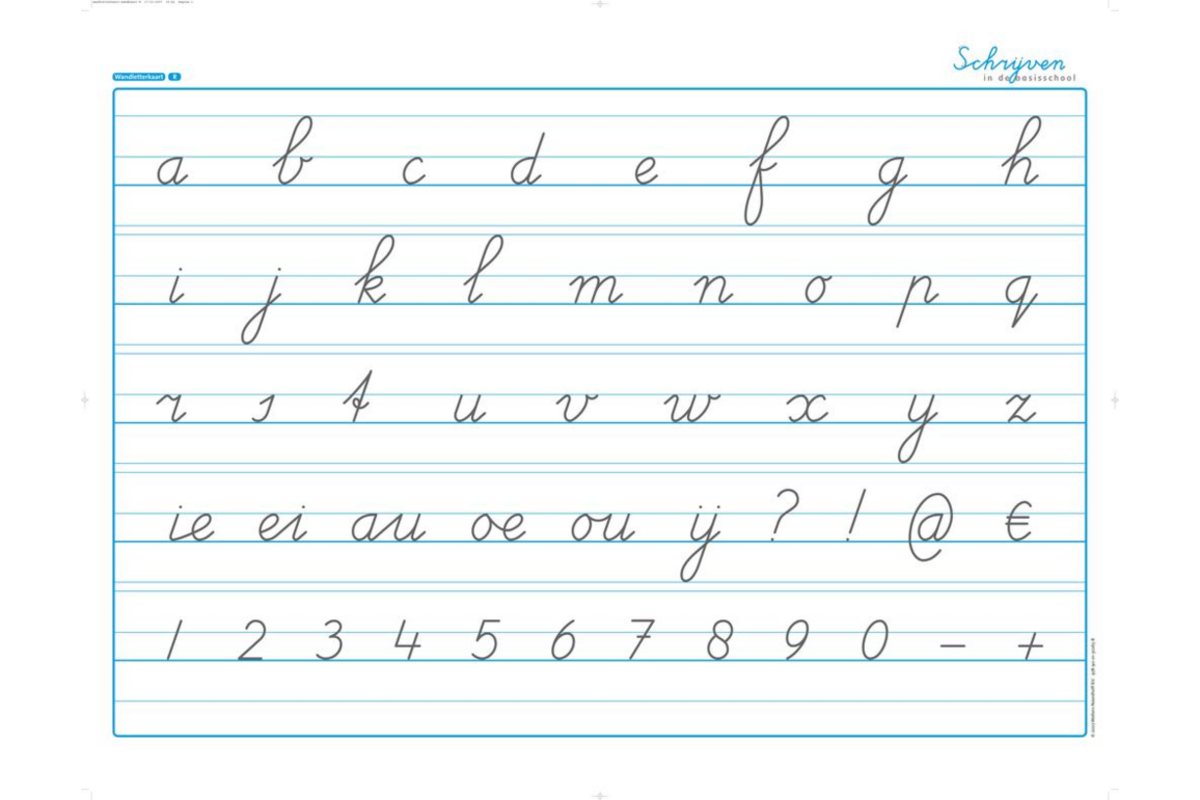 Schrijven
in de basisschool
Wandletterkaart R
a b c d e f g h
i j k l m n o p q
r s t u v w x y z
ie ei au oe ou ij ? ! @ €
1 2 3 4 5 6 7 8 9 0 – +